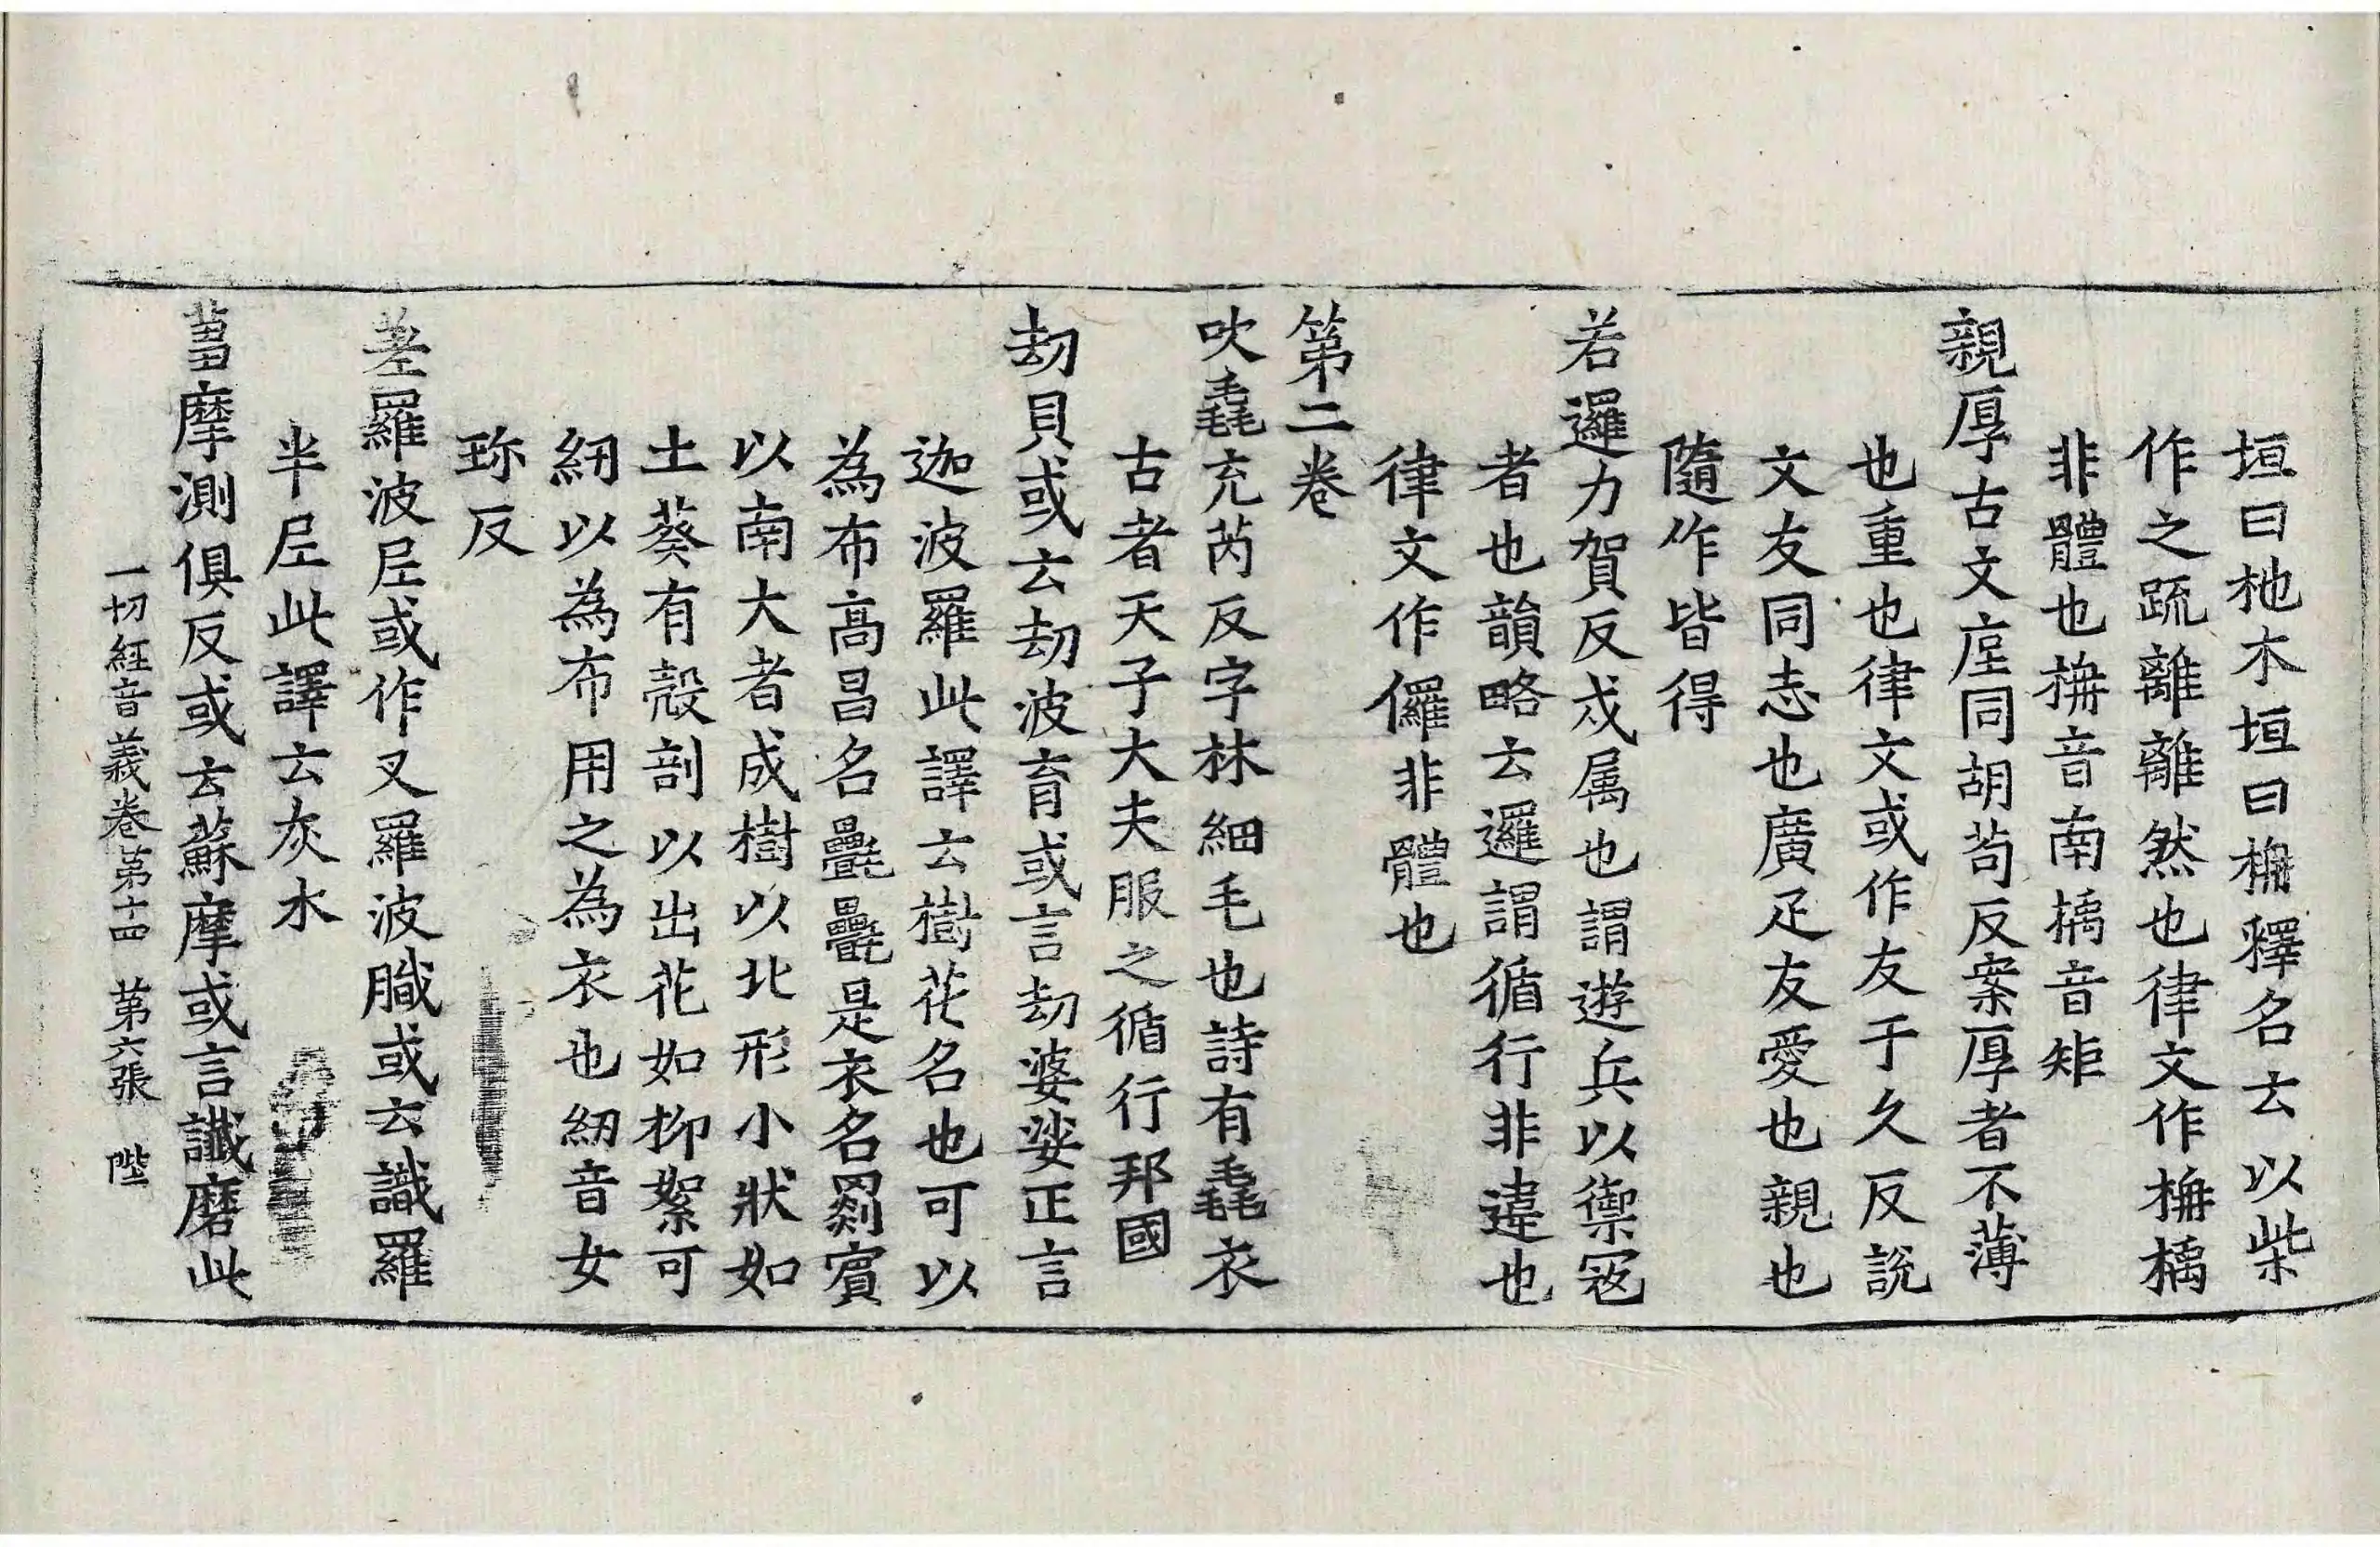 垣曰杝木垣曰柵釋名云以柴
作之䟽離離然也律文作栟㮚
非體也栟音南㮚音矩
親厚古文垕同胡苟反案厚者不薄
也重也律文或作友于久反說
文友同志也廣疋友愛也親也
隨作皆得
若邏力賀反戍属也謂遊兵以禦寇
者也韻略云邏謂循行非違也
律文作儸非體也
第二卷
吹毳充芮反字林細毛也詩有毳衣
古者天子大夫服之循行邦國
劫貝或云劫波育或言劫婆娑正言
迦波羅此譯云樹花名也可以
為布高昌名㲲㲲是衣名罽賓
以南大者成樹以北形小狀如
土葵有殼剖以出花如柳絮可
紉以為布用之為衣也紉音女
珎反
差羅波𡰱或作叉羅波膱或云識羅
半𡰱此譯云灰水
蒭摩測俱反或云蘇摩或言讖磨此
一切經音義卷第十四　第六張　陛